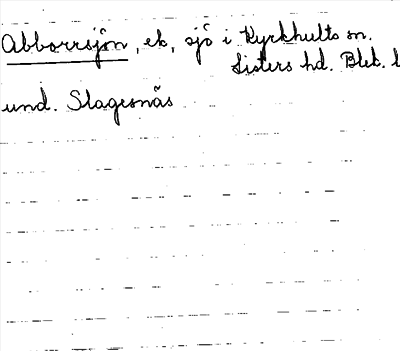 Abborrsjön, ek, sjö i Kyrkhults sn.
Listers hd. Blek. l
und. Slagesnäs